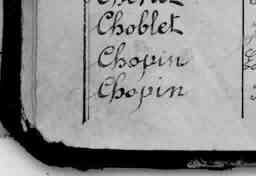 Choblet
Chopin
Chopin